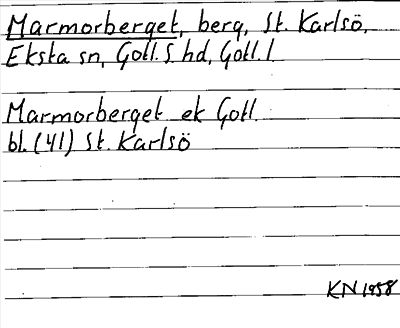 Marmorberget, berg, St. Karlsö,
Eksta sn, Gotl. S. hd, Gotl. l.
Marmorberget ek Gotl.
bl. (41) St. Karlsö
KN 1958